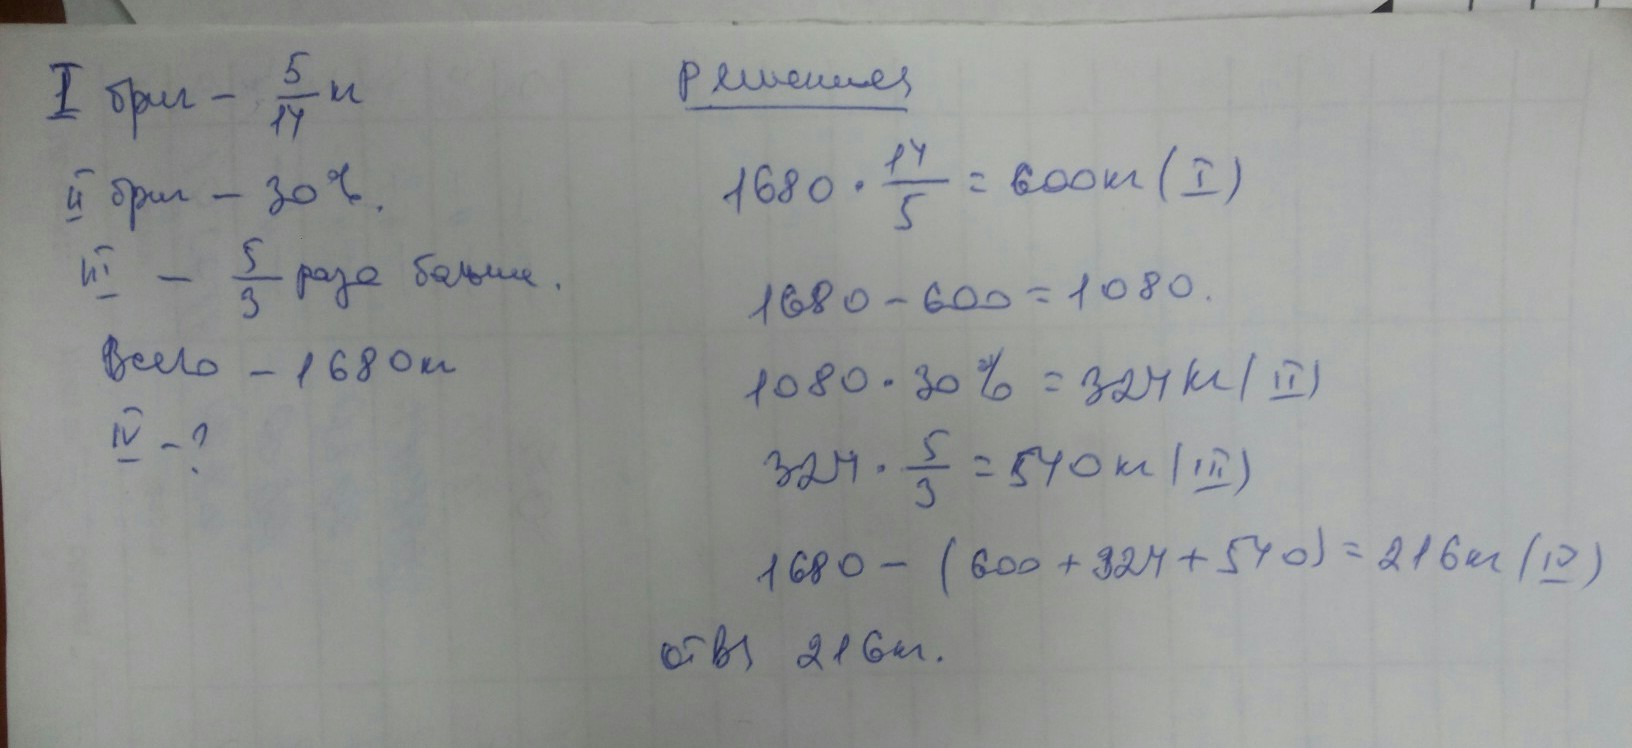 I бриг – 5/14 кг
II бриг – 30%.
III – 5/3 раза больше.
Всего – 1680 кг
IV – ?
Решения
1680 · 14/5 = 600 кг (I)
1680 – 600 = 1080.
1080 · 30% = 324 кг (II)
324 · 5/3 = 540 кг (III)
1680 – (600 + 324 + 540) = 216 кг (IV)
отв 216 кг.